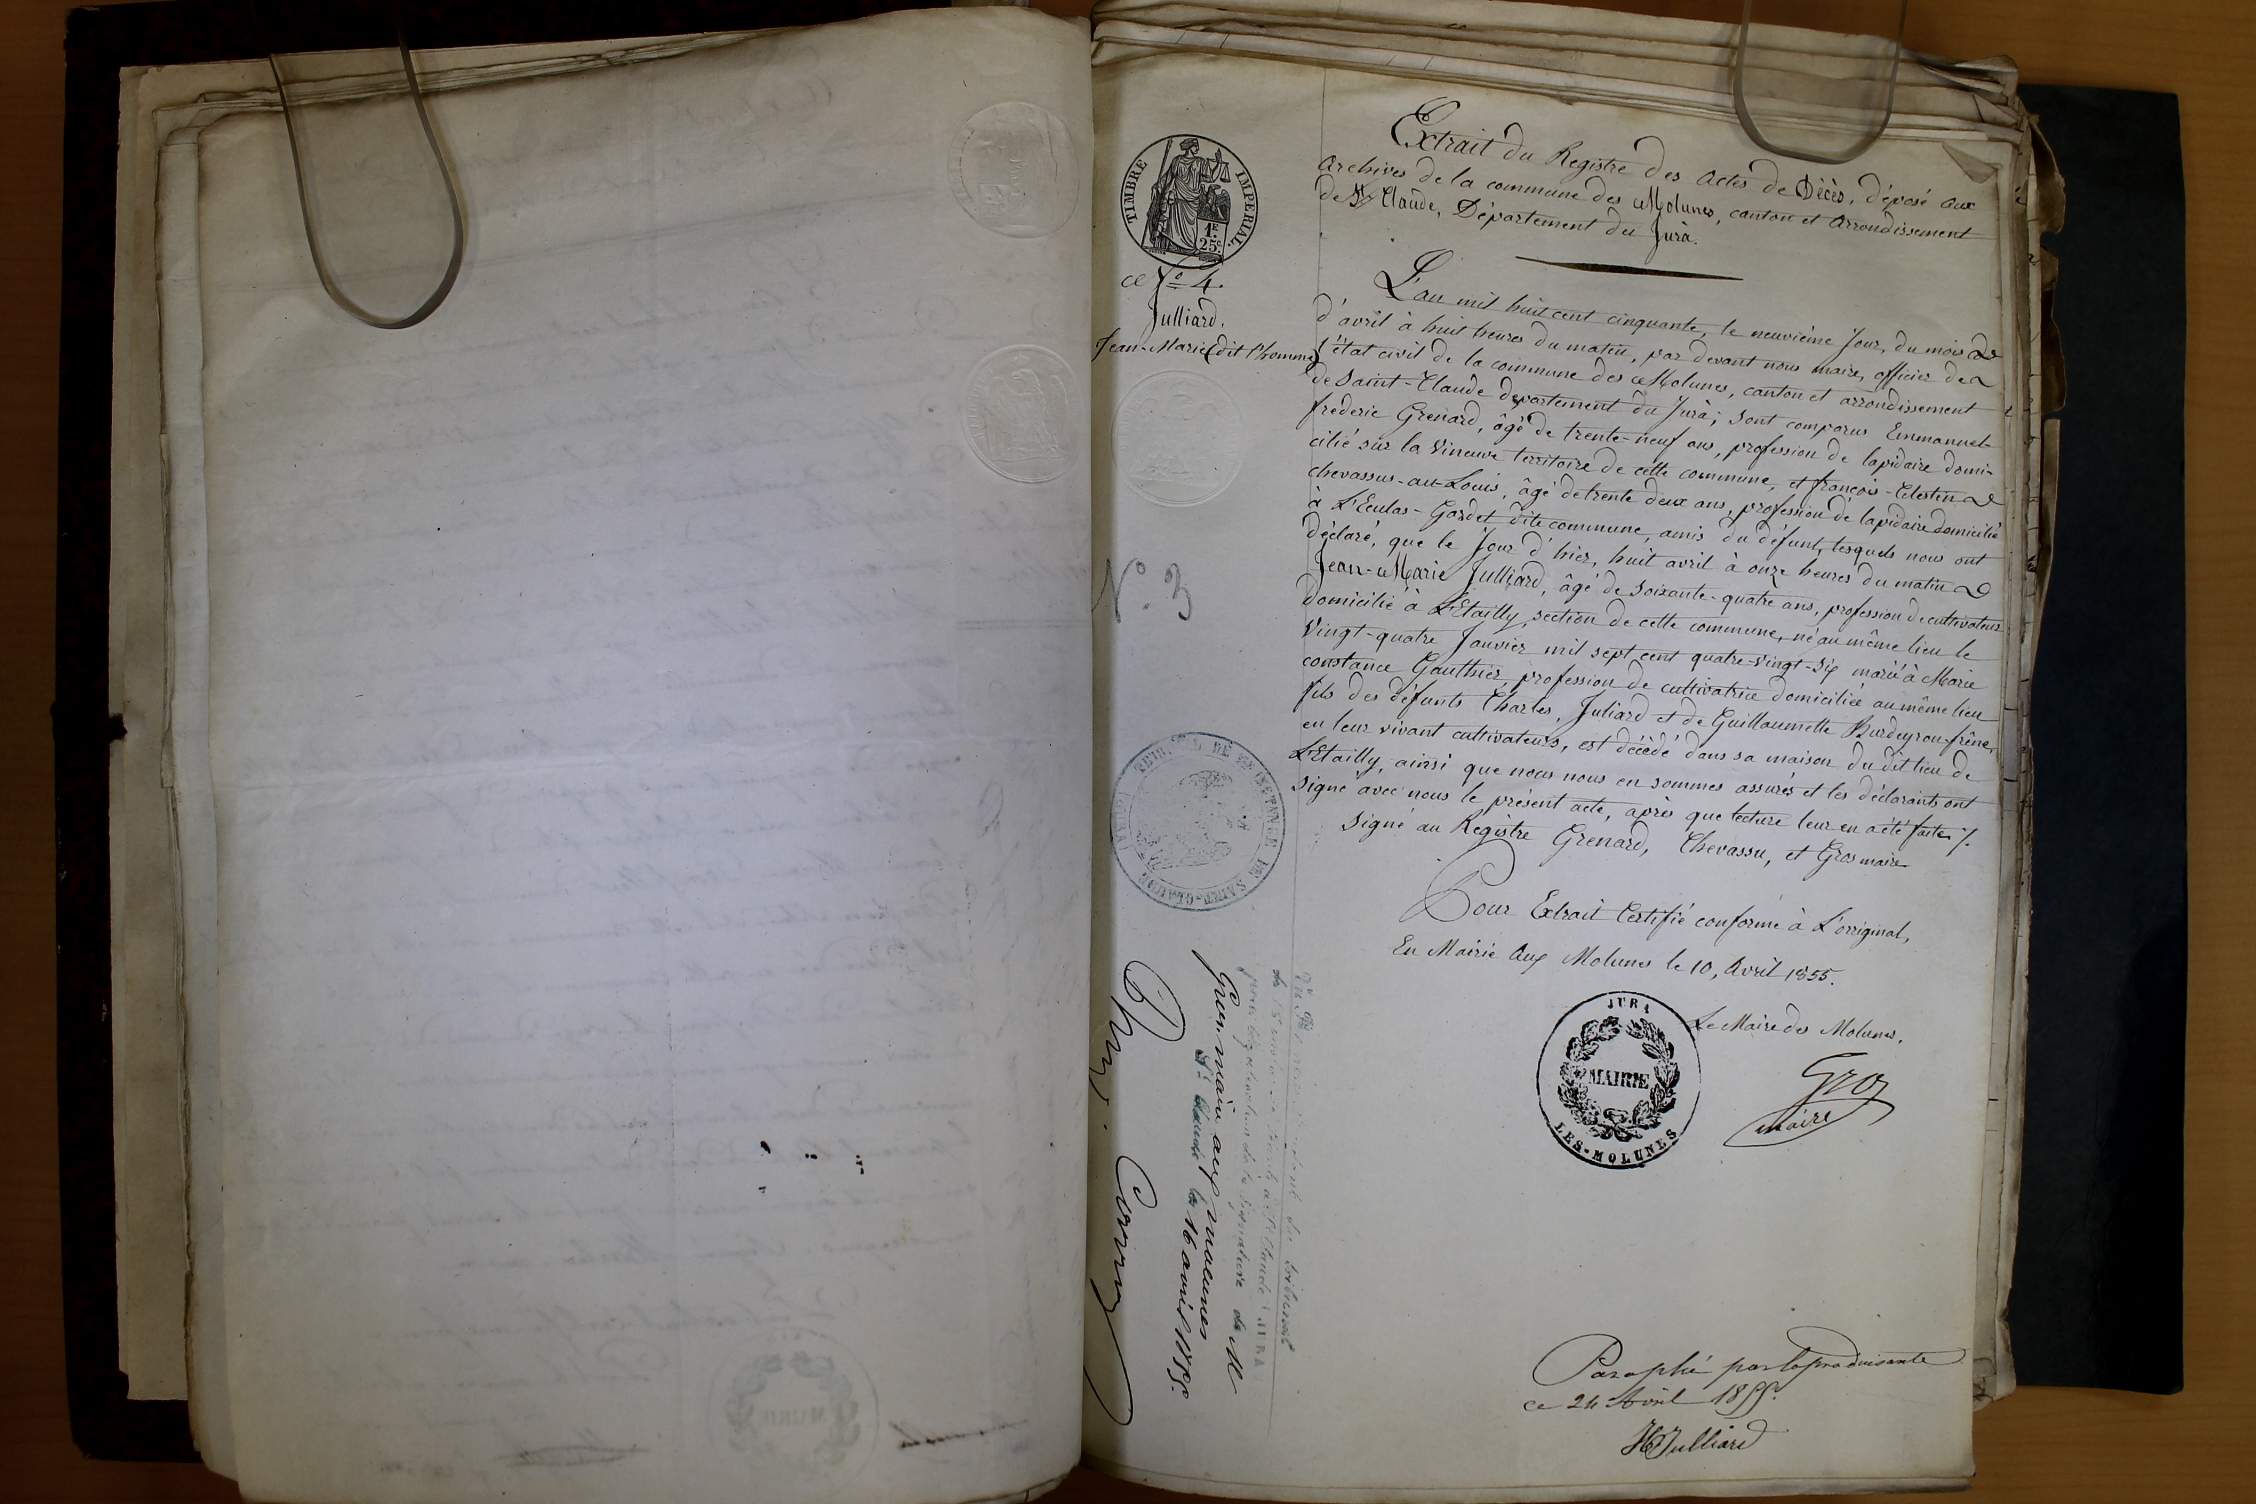 Extrait du Registre des actes de Décès, déposé aux
archives de la commune des Molunes, canton et Arrondissement
de St Claude, Département du Jura.
TIMBRE IMPERIAL.
1F
25c
N° 4.
Julliard.
Jean-Marie (dit l'homme)
L'an mil huit cent cinquante, le neuvième Jour, du mois
d'avril à huit heures du matin, par devant nous maire, officier de
l'état civil de la commune des Molunes, canton et arrondissement
de Saint-Claude département du Jura; sont comparus Emmanuel
frédéric Grenard, âgé de trente-neuf ans, profession de lapidaire domi-
cilié sur la Vineuve territoire de cette commune, et françois-Célestin
chevassus-au-Louis, âgé de trente deux ans, profession de lapidaire domicilié
à L'Eculas-Gardet dite commune, amis du défunt, lesquels nous ont
déclaré, que le Jour d'hier, huit avril à onze heures du matin
Jean-Marie Julliard, âgé de soixante-quatre ans, profession de cultivateur
domicilié à L'Etailly, section de cette commune, né au même lieu le
Vingt-quatre Janvier mil sept cent quatre-vingt-six marié à Marie
constance Gauthier profession de cultivatrice domiciliée au même lieu
fils des défunts Charles, Juliard et de Guillaumette Burdeyron-frêne,
en leur vivant cultivateurs, est décédé dans sa maison du dit lieu de
L'Etailly, ainsi que nous nous en sommes assurés et les déclarants ont
signé avec nous le présent acte, après que lecture leur en a été faite ./.
signé au Registre Grenard, Chevassu, et Gros maire
N° 3
TRIBUNAL DE 1re INSTANCE DE SAINT-CLAUDE (JURA)
Pour Extrait Certifié conforme à L'original,
En Mairie aux Molunes le 10, Avril 1855.
Le Maire des Molunes.
JURA
MAIRIE
LES-MOLUNES
Gros
maire
du tribunal
de St Claude (JURA
pour légalisation de la signature de M
Gros. maire aux moulunes
St Claude le 16 avril 1855.
Paraphé par la produisante
ce 24 Avril 1855.
Julliard